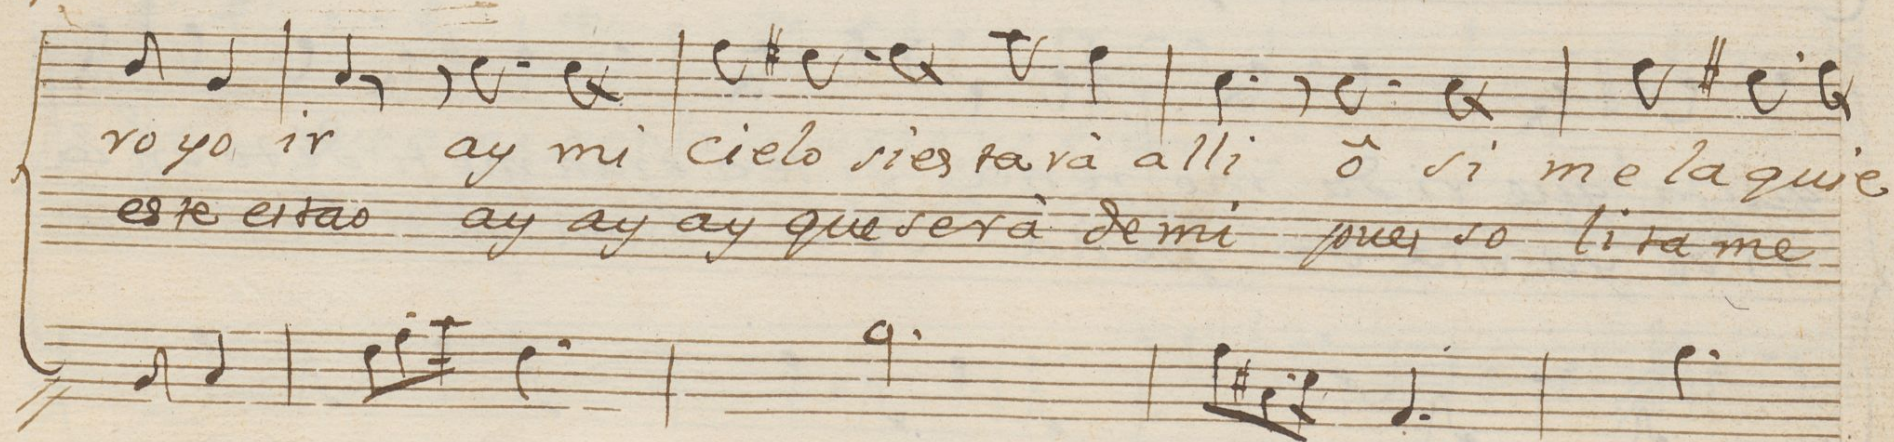 ro yo ir ay mi cielo si estarà alli ô si me la quie
este estao ay ay ay que serà de mi pues so li ta me